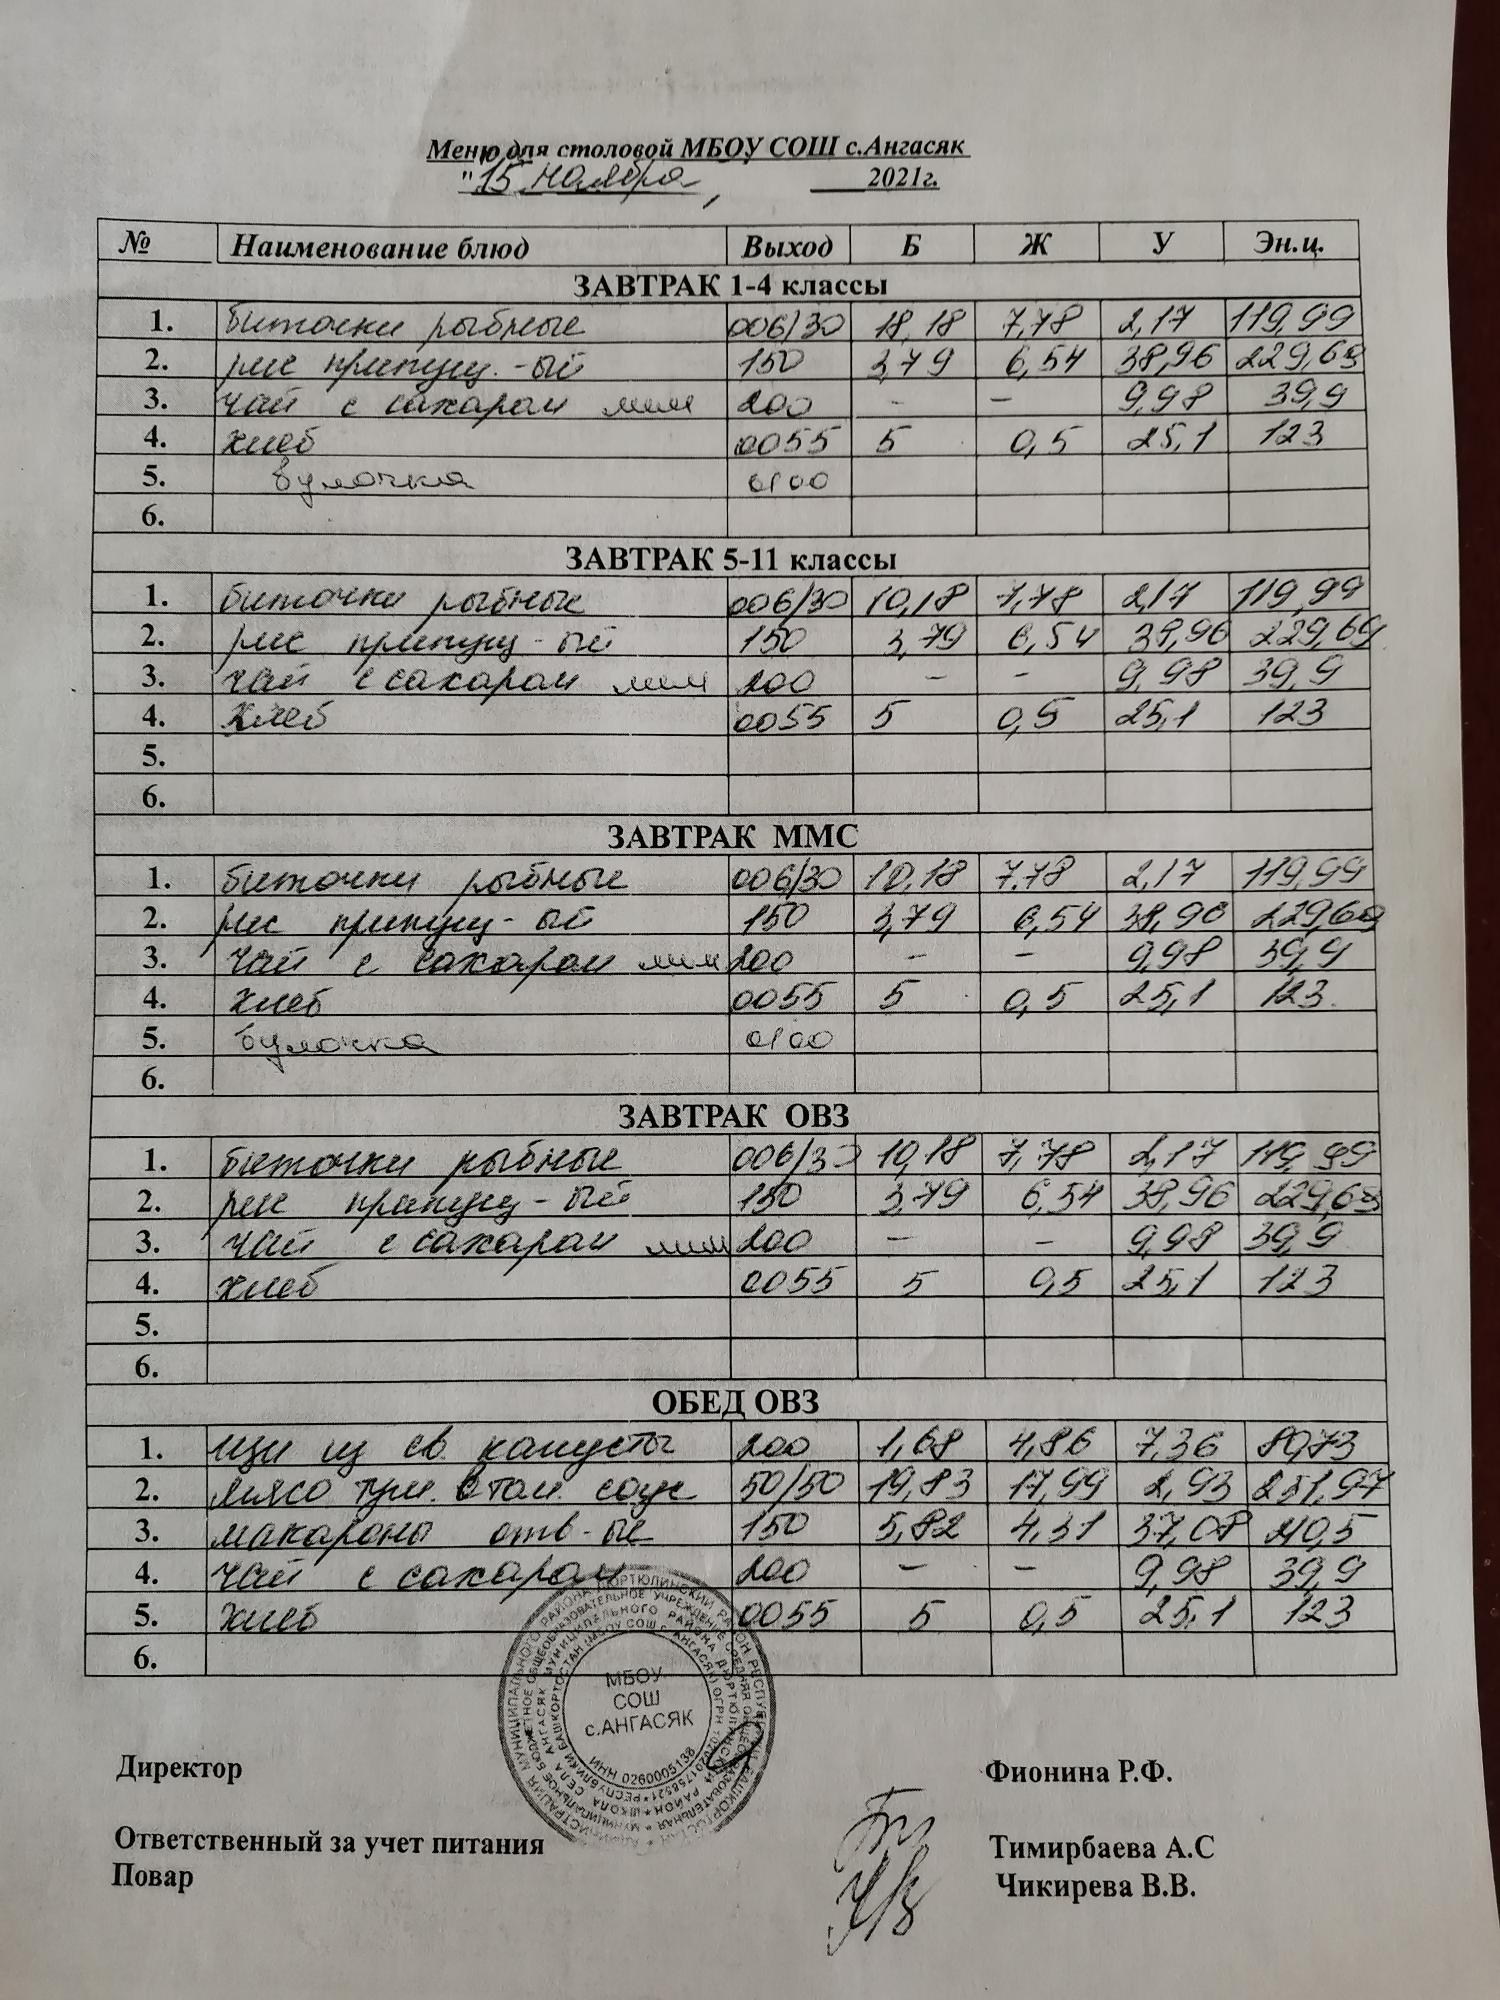 Меню для столовой МБОУ СОШ с.Ангасяк
"15 ноября, 2021г.
№ Наименование блюд Выход Б Ж У Эн.ц.
ЗАВТРАК 1-4 классы
1. биточки рыбные 006/30 18,18 7,78 2,17 119,99
2. рис припущ.-ый 150 3,79 6,54 38,96 229,69
3. чай с сахаром лим 200 – – 9,98 39,9
4. хлеб 0055 5 0,5 25,1 123
5. булочка 0100
6.
ЗАВТРАК 5-11 классы
1. биточки рыбные 006/30 10,18 7,78 2,17 119,99
2. рис припущ-ый 150 3,79 6,54 38,96 229,69
3. чай с сахаром лим 200 – – 9,98 39,9
4. Хлеб 0055 5 0,5 25,1 123
5.
6.
ЗАВТРАК ММС
1. биточки рыбные 006/30 10,18 7,78 2,17 119,99
2. рис припущ-ый 150 3,79 6,54 38,96 229,69
3. чай с сахаром лим 200 – – 9,98 39,9
4. хлеб 0055 5 0,5 25,1 123
5. булочка 0100
6.
ЗАВТРАК ОВЗ
1. биточки рыбные 006/30 10,18 7,78 2,17 119,99
2. рис припущ-ый 150 3,79 6,54 38,96 229,69
3. чай с сахаром лим 200 – – 9,98 39,9
4. хлеб 0055 5 0,5 25,1 123
5.
6.
ОБЕД ОВЗ
1. щи из св. капусты 200 1,68 4,86 7,36 80,73
2. мясо туш. в том. соус 50/50 19,83 17,99 2,93 251,97
3. макароны отв-ые 150 5,82 4,31 37,08 210,5
4. чай с сахаром 200 – – 9,98 39,9
5. хлеб 0055 5 0,5 25,1 123
6.
МБОУ
СОШ
с.АНГАСЯК
ИНН 0260005138
Директор Фионина Р.Ф.
Ответственный за учет питания Тимирбаева А.С
Повар Чикирева В.В.